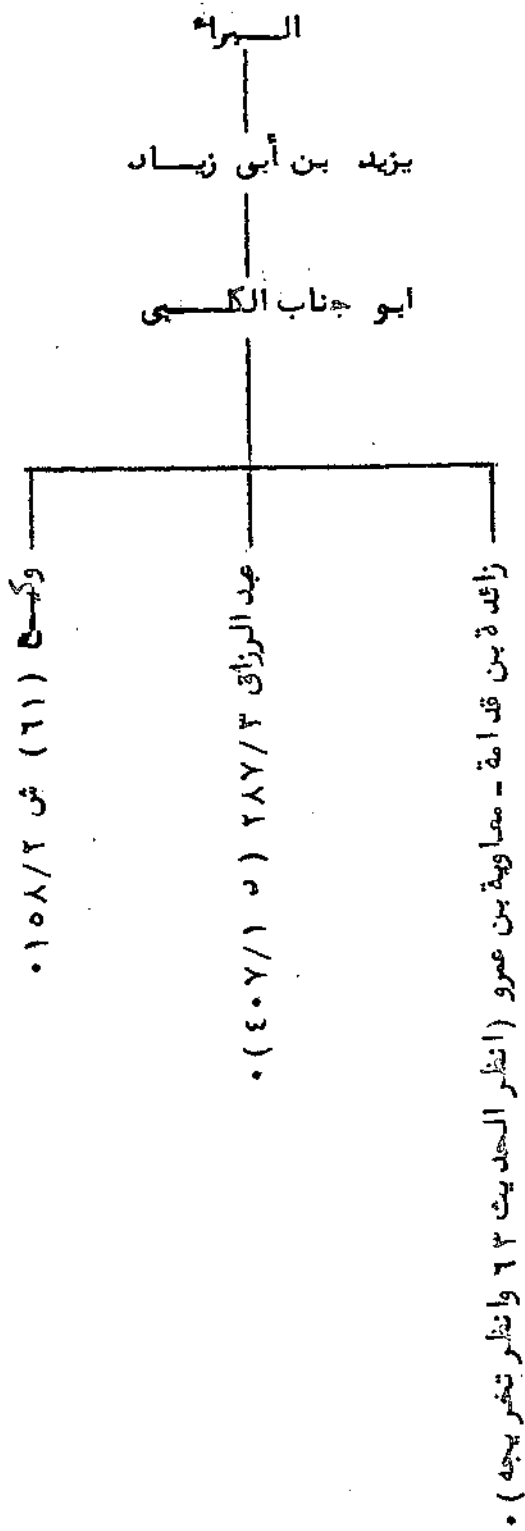 البراء
يزيد بن أبي زياد
ابو جناب الكلبي
زائدة بن قدامة - معاوية بن عمرو (انظر الحديث ٦٣ وانظر تخريجه) ٠
عبد الرزاق ٢٨٧/٣ ( د ٤٠٧/١ ) ٠
وكيع (٦١) ش ١٥٨/٢ ٠